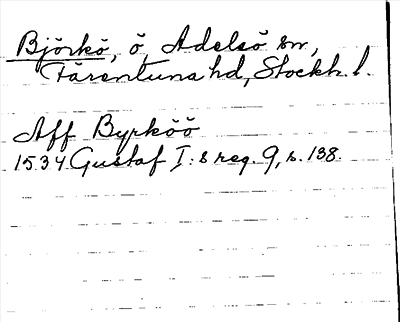 Björkö, ö, Adelsö sn,
Färentuna hd, Stockh. l.
Aff Byrköö
1534 Gustaf I:s reg. 9, s. 138.